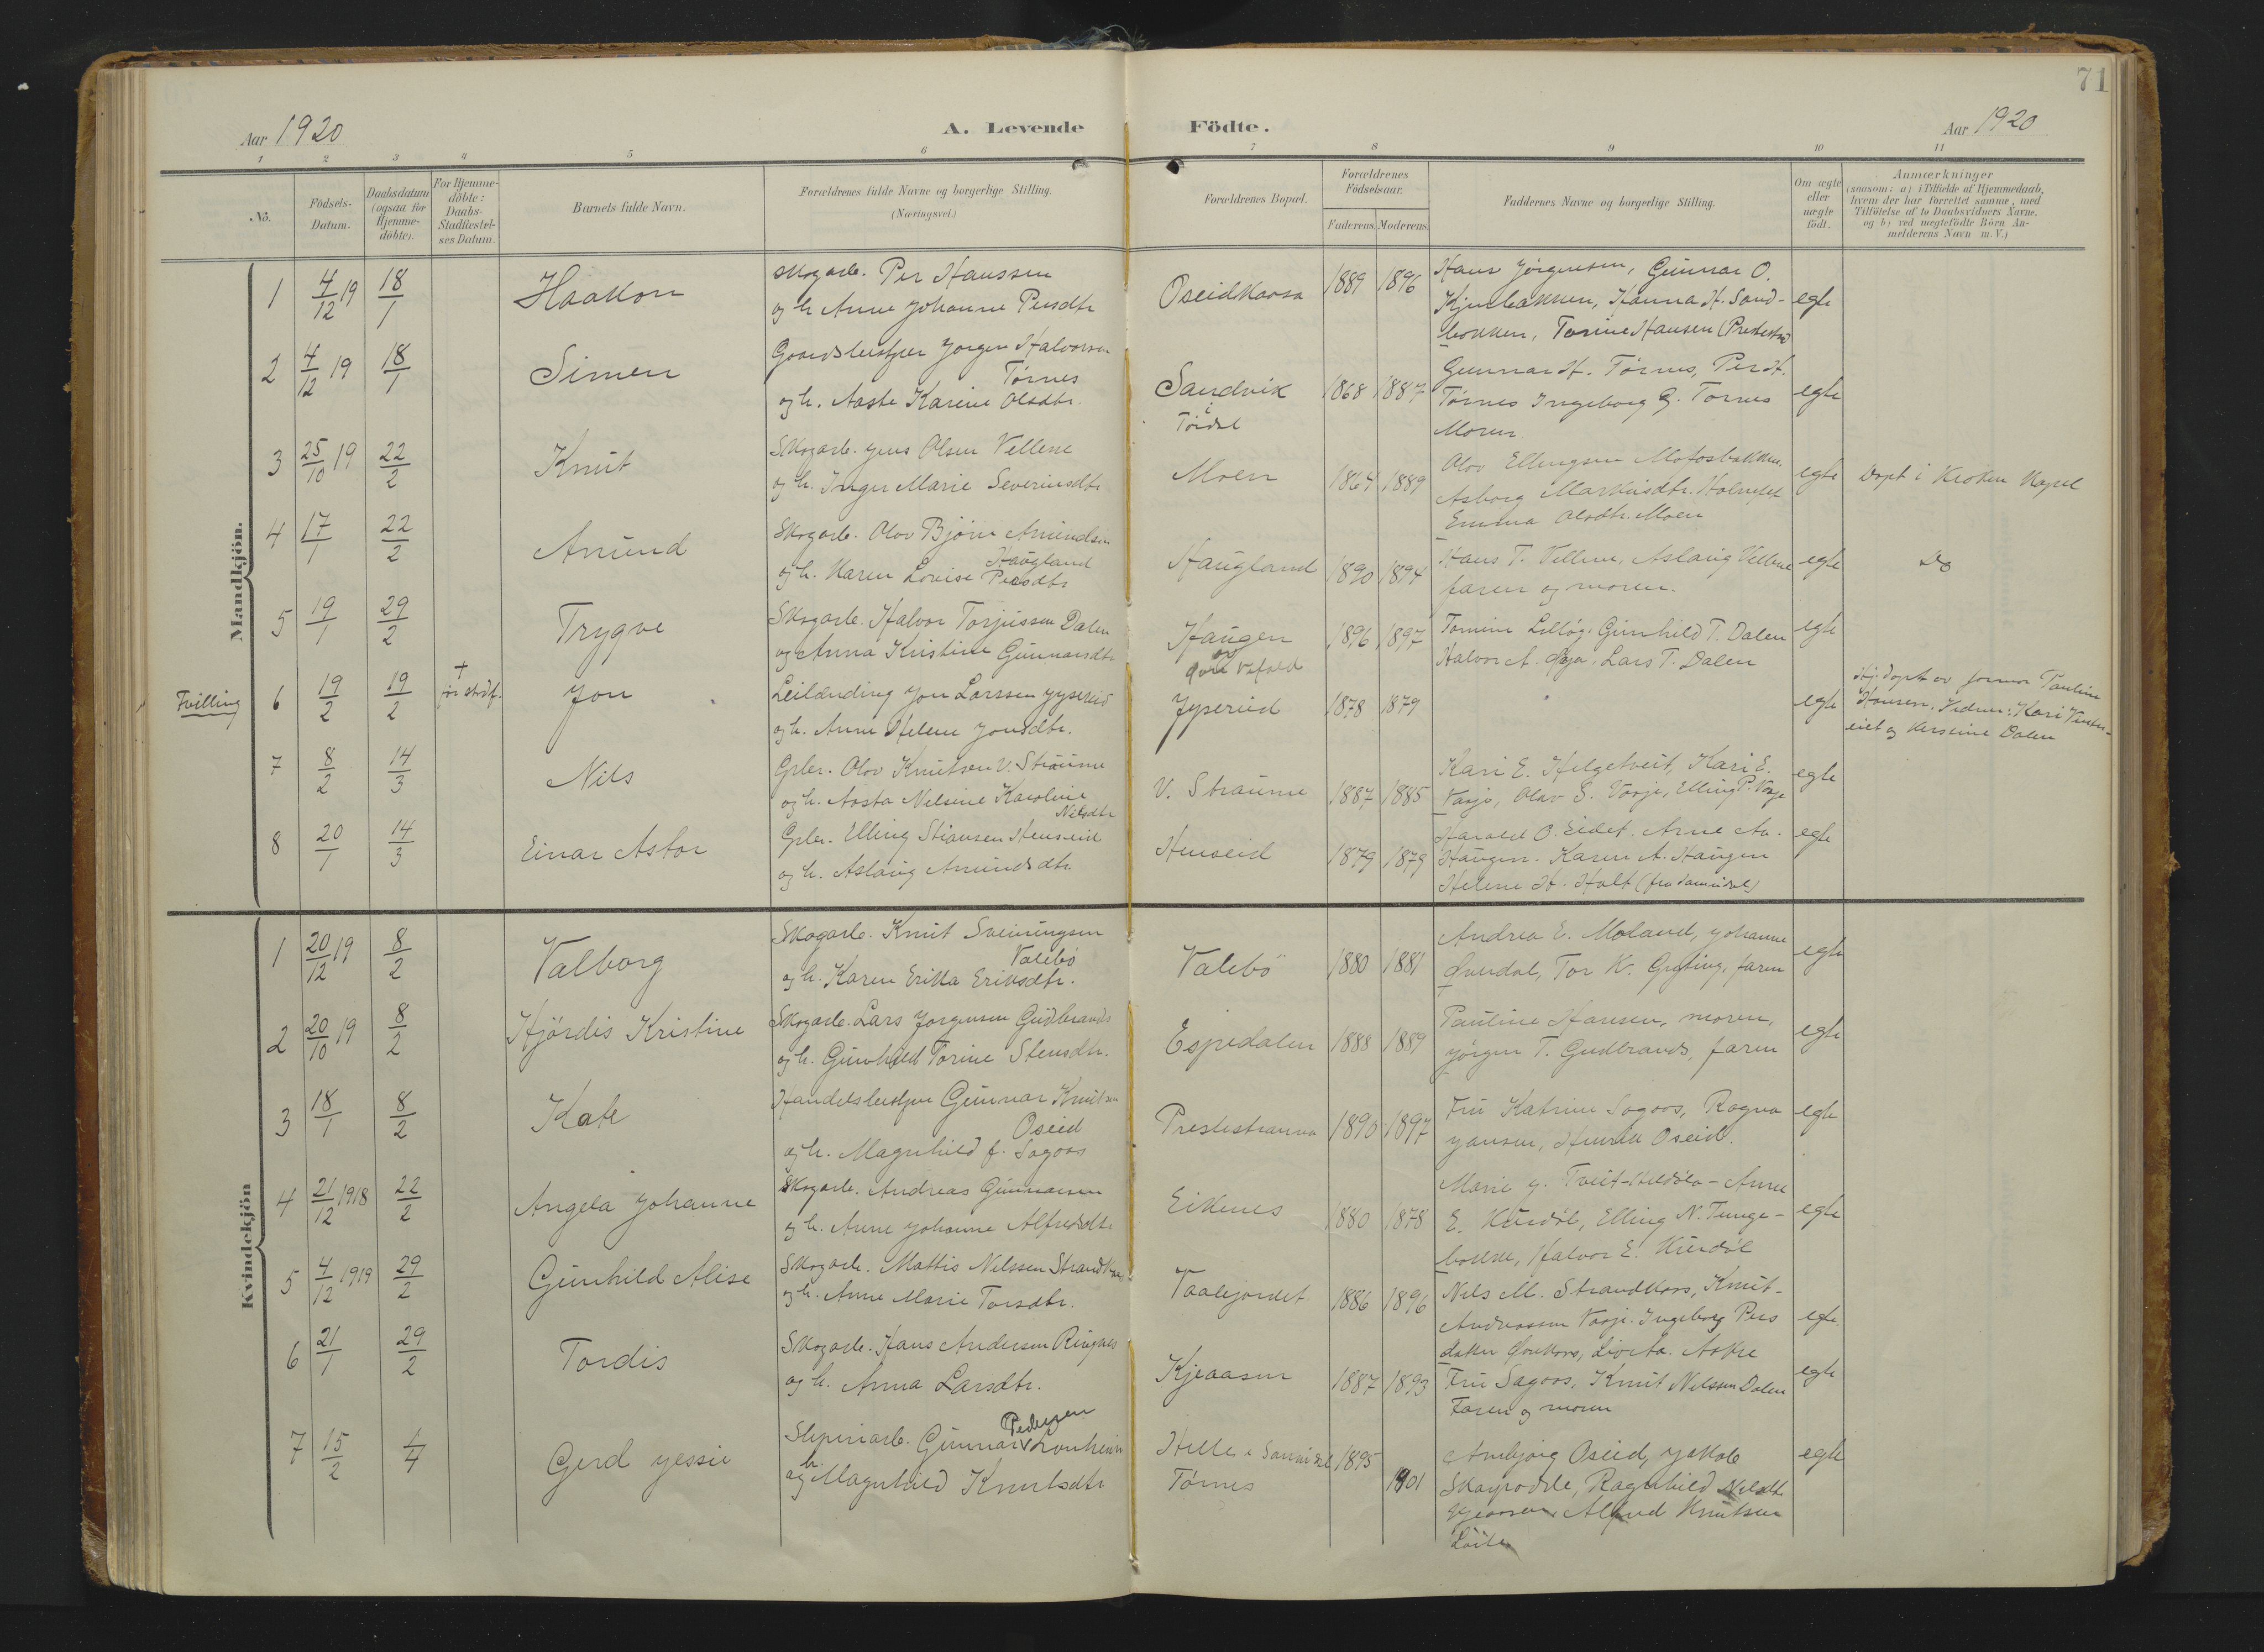 71
Aar 1920
A. Levende Födte.
Aar 1920
1 2 3 4 5 6 7 8 9 10 11
No.
Födsels-
Datum.
Daabsdatum
(ogsaa for
Hjemme-
döbte).
For Hjemme-
döbte:
Daabs-
Stadfæstel-
ses Datum.
Barnets fulde Navn.
Forældrenes fulde Navne og borgerlige Stilling.
(Næringsvei.)
Forældrenes Bopæl.
Forældrenes
Födselsaar.
Faderens. Moderens.
Faddernes Navne og borgerlige Stilling.
Om ægte
eller
uægte
födt.
Anmærkninger
(saasom: a) i Tilfælde af Hjemmedaab,
hvem der har forrettet samme, med
Tilföielse af to Daabsvidners Navne.
og b) ved uægtefödte Börn An-
melderens Navn m. V.)
Mandkjön.
1 4/12 19 18/1 Haakon
Skogarb. Per Hanssen
og h. Anne Johanne Persdtr
Oseidkaasa 1889 1896
Hans Jörgensen, Gunnar O.
Kjenbakken, Hanna H. Sand-
bokken, Torine Hansen
egte
2 4/12 19 18/1 Simen
Gaardsbestyrer Jorgen Halvorsen
Törnes
og h. Aaste Karine Olsdtr.
Sandvik
i
Tördal
1868 1887
Gunnar H. Törnes, Per H.
Törnes Ingeborg G. Tornes
Moren
egte
3 25/10 19 22/2 Knut
Skogarb. Jens Olsen Vellene
og h. Inger Marie Severinsdtr
Moen 1864 1889
Olov Ellingsen
Asborg Markusdtr.
Emma Olsdtr. Moen
egte
Döpt i Kroken Kapel
4 17/1 22/2 Amund
Skogarb. Olov Björn Amundsen
Haugland
og h. Karen Lovise Persdtr
Haugland 1890 1894
Hans T. Vellene, Aslaug Vellene
faren og moren.
egte
Do
5 19/1 29/2 Trygve
Skogarb. Halvor Torjussen Dalen
og Anna Kristine Gunnarsdtr
Haugen
1896 1897
Tomine Lillög. Gunhild T. Dalen
Halvor A. Öya, Lars T. Dalen
egte
Tvilling
6 19/2 19/2 † Jon
Leilænding Jon Larssen Jyserud
og h. Anne Helene Jonsdtr.
Jyserud 1878 1879
egte
Hj. döpt av jormor Pauline
Hansen. Vidner: Kari
og Kersine Dalen
7 8/2 14/3 Nils
Grbr. Olov Knutsen V. Straume
og h. Aasta Nelsine Karoline
Nilsdtr
V. Straume 1887 1885
Kari E. Helgetveit, Kari E.
Vasjö, Olav S. Vasje, Elling P. Vasje
egte
8 20/1 14/3 Einar Astor
Grbr. Elling Stiansen Henseid
og h. Aslaug Amundsdtr.
Henseid 1879 1879
Harald O. Eidet. Arne Aa.
Haugen. Karen A. Haugen
Helene H. Holt (fra Sannidal)
egte
Kvindekjön
1 20/12 19 8/2 Valborg
Skogarb. Knut Sveinungsen
Valebö
og h. Karen Erikka Eriksdtr.
Valebö 1880 1881
Andrea E. Moland, Johanne
Övendal, Tor K. Gryting, faren
egte
2 20/10 19 8/2 Hjördis Kristine
Skogarb. Lars Jorgensen Gudbrands
og h. Gunhild Torine Stensdtr.
Espedalen 1888 1889
Pauline Hansen, moren,
Jörgen T. Gudbrands, faren
egte
3 18/1 8/2 Kate
Handelsbestyrer Gunnar Knutsen
Oseid
og h. Magnhild f. Sagoos
Prestestranna 1890 1897
Fru Katrine Sagoos, Ragna
Jansen, Oseid.
egte
4 21/12 1918 22/2 Angela Johanne
Skogarb. Andreas Gunnarsen
og h. Anne Johanne Alfredsdtr
Eikenes 1880 1878
Marie J. Tveit - Anne
E. Kurdöl, Elling N. Tunge-
bokke, Halvor E. Kurdöl
egte
5 4/12 1919 29/2 Gunhild Alise
Skogarb. Mattis Nilssen Strandkaas
og h. Anne Marie Torsdtr.
Vaalejordet 1886 1896
Nils M. Strandkaas, Knut
Andreassen Vasje. Ingeborg Pers
datter Liv Aa. Aakre
egte
6 21/1 29/2 Tordis
Skogarb. Hans Andersen Ringnes
og h. Anna Larsdtr.
Kjeaasen 1887 1893
Fru Sagoos, Knut Nilssen Dalen
Faren og moren
egte
7 15/2 1/4 Gerd Jessie
Pedersen
Sliperiarb. Gunnar Lonheim
og h. Magnhild Knutsdtr
Helle i Sannidal 1895
Törnes 1901
Annbjörg Oseid, Jakob
Ragnhild Nilsdtr
Kjeaasen, Alfred Knutsen
egte